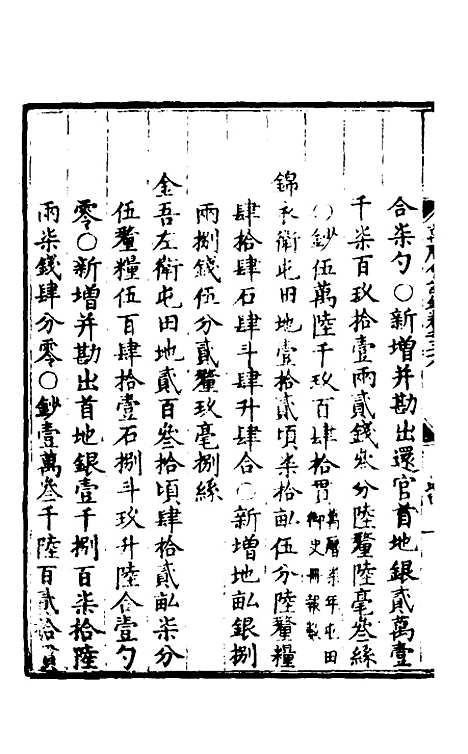 合柒勺○新增并勘出還官首地銀貳萬壹
千柒百玖拾壹兩貳錢叁分陸釐陸毫叁絲
○鈔伍萬陸千玖百肆拾貫萬曆柒年屯田御史冊報數
錦衣衛屯田地壹拾貳頃柒拾畝伍分陸釐糧
肆拾肆石肆斗肆升肆合○新增地畝銀捌
兩捌錢伍分貳釐玖毫捌絲
金吾左衛屯田地貳百叁拾頃肆拾貳畝柒分
伍釐糧伍百肆拾壹石捌斗玖升陸合壹勺
零○新增并勘出首地銀壹千捌百柒拾陸
兩柒錢肆分零○鈔壹萬叁千陸百貳拾貫